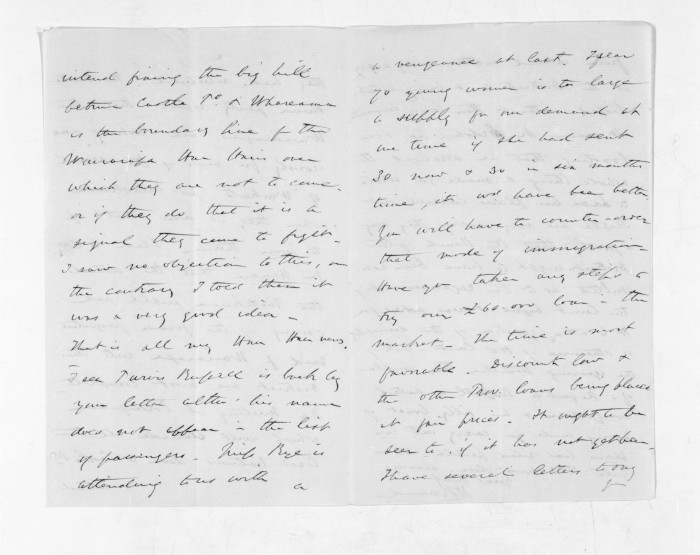 intend fixing the big hill
between Castle Pt. & Whareama
as the boundary line for the
Wairarapa Hau Haus over
which they are not to come -
or if they do that it is a
signal they come to fight -
I saw no objection to this, on
the contrary I told them it
was a very good idea -
That is all my Hau Hau news.
I see Purvis Russell is back by
your letter altho' his name
does not appear in the list
of passengers. Miss Rye is
attending to us with a
a vengeance at last. I fear
70 young women is to large
a supply for our demand at
one time if she had sent
30 now & 30 in six months
time, it wd have been better.
You will have to counter-order
that mode of immigration -
Have you taken any steps to
try our £60.000 loan in the
market. The time is most
favorable. Discount low &
the other Prov. loans being placed
at fair prices. It ought to be
seen to if it has not yet been -
I have several letters to